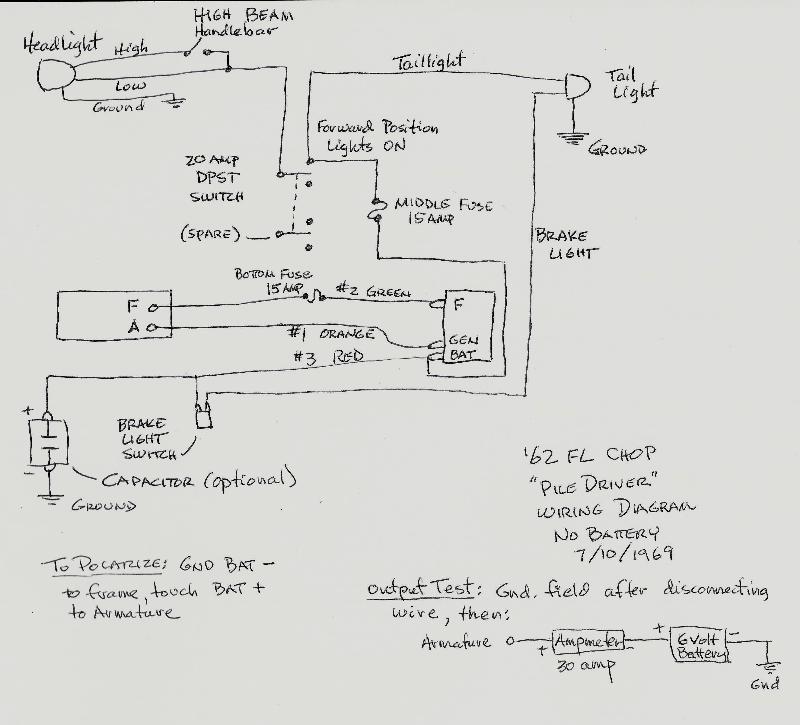 HIGH BEAM
Handlebar
Headlight
High
Low
Ground
Taillight
Tail
Light
GROUND
Forward Position
Lights ON
20 AMP
DPST
SWITCH
MIDDLE FUSE
15 AMP
(SPARE)
BRAKE
LIGHT
BOTTOM FUSE
15 AMP
#2 GREEN
F
F
A
#1 ORANGE
GEN
#3 RED
BAT
+
BRAKE
LIGHT
SWITCH
-
CAPACITOR (optional)
GROUND
'62 FL CHOP
"PILE DRIVER"
WIRING DIAGRAM
NO BATTERY
7/10/1969
TO POLARIZE: GND BAT -
to frame, touch BAT +
to Armature
OUTPUT TEST: Gnd. field after disconnecting
wire, then:
Armature + Ampmeter - + 6 Volt -
Battery
30 amp
Gnd